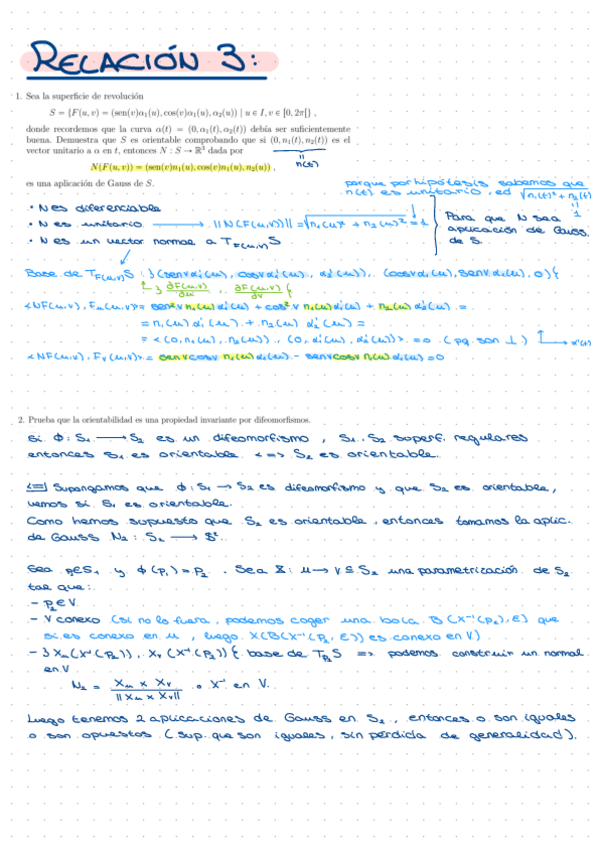 RELACIÓN 3:
1. Sea la superficie de revolución
S = {F(u, v) = (sen(v)α₁(u), cos(v)α₁(u), α₂(u)) | u ∈ I, v ∈ [0, 2π[} ,
donde recordemos que la curva α(t) = (0, α₁(t), α₂(t)) debía ser suficientemente
buena. Demuestra que S es orientable comprobando que si (0, n₁(t), n₂(t)) es el
vector unitario a α en t, entonces N : S → ℝ³ dada por
n(t)
N(F(u, v)) = (sen(v)n₁(u), cos(v)n₁(u), n₂(u)) ,
es una aplicación de Gauss de S.
porque por hipótesis sabemos que
n(t) es unitario, ed √n₁(t)² + n₂(t)
1
• N es diferenciable
• N es unitario → ||N(F(u,v))|| = √n₁(u)² + n₂(u)² = 1
• N es un vector normal a T_F(u,v) S
Para que N sea
aplicación de Gauss
de S.
Base de T_F(u,v) S : {(senv α₁'(u), cosv α₁'(u), α₂'(u)), (cosv α₁(u), senv α₁(u), 0)}
{∂F(u,v)/∂u , ∂F(u,v)/∂v}
<NF(u,v), Fu(u,v)> = sen²v n₁(u) α₁'(u) + cos²v n₁(u) α₁'(u) + n₂(u) α₂'(u) =
= n₁(u) α₁'(u) + n₂(u) α₂'(u) =
= <(0, n₁(u), n₂(u)), (0, α₁'(u), α₂'(u))> = 0 (pq son ⊥) α'(t)
<NF(u,v), Fv(u,v)> = senv cosv n₁(u) α₁(u) - senv cosv n₁(u) α₁(u) = 0
2. Prueba que la orientabilidad es una propiedad invariante por difeomorfismos.
Si Φ: S₁ → S₂ es un difeomorfismo , S₁, S₂ superf. regulares
entonces S₁ es orientable <=> S₂ es orientable.
<=| Supongamos que Φ: S₁ → S₂ es difeomorfismo y que S₂ es orientable,
vemos si S₁ es orientable.
Como hemos supuesto que S₂ es orientable, entonces tomamos la aplic.
de Gauss N₂: S₂ → S².
Sea p₁∈S₁ y Φ(p₁) = p₂ . Sea X: U → V ⊆ S₂ una parametrización de S₂
tal que:
- p₂ ∈ V
- V conexo (si no lo fuera, podemos coger una bola B(X⁻¹(p₂), ε) que
si es conexo en U, luego X(B(X⁻¹(p₂, ε)) es conexo en V)
- {Xu(X⁻¹(p₂)), Xv(X⁻¹(p₂))} base de T_p₂ S => podemos construir un normal
en V
N₂ = Xu × Xv / ||Xu × Xv|| ∘ X⁻¹ en V.
Luego tenemos 2 aplicaciones de Gauss en S₂, entonces o son iguales
o son opuestos (sup. que son iguales, sin pérdida de generalidad).